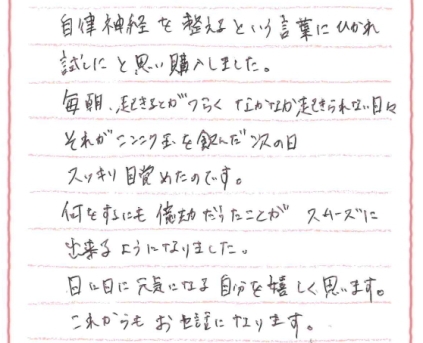 自律神経を整えるという言葉にひかれ
試しにと思い購入しました。
毎朝、起きることがつらくなかなか起きられない日々
それがニンニク玉を飲んだ次の日
スッキリ目覚めたのです。
何をするにも億劫だったことがスムーズに
出来るようになりました。
日に日に元気になる自分を嬉しく思います。
これからもお世話になります。